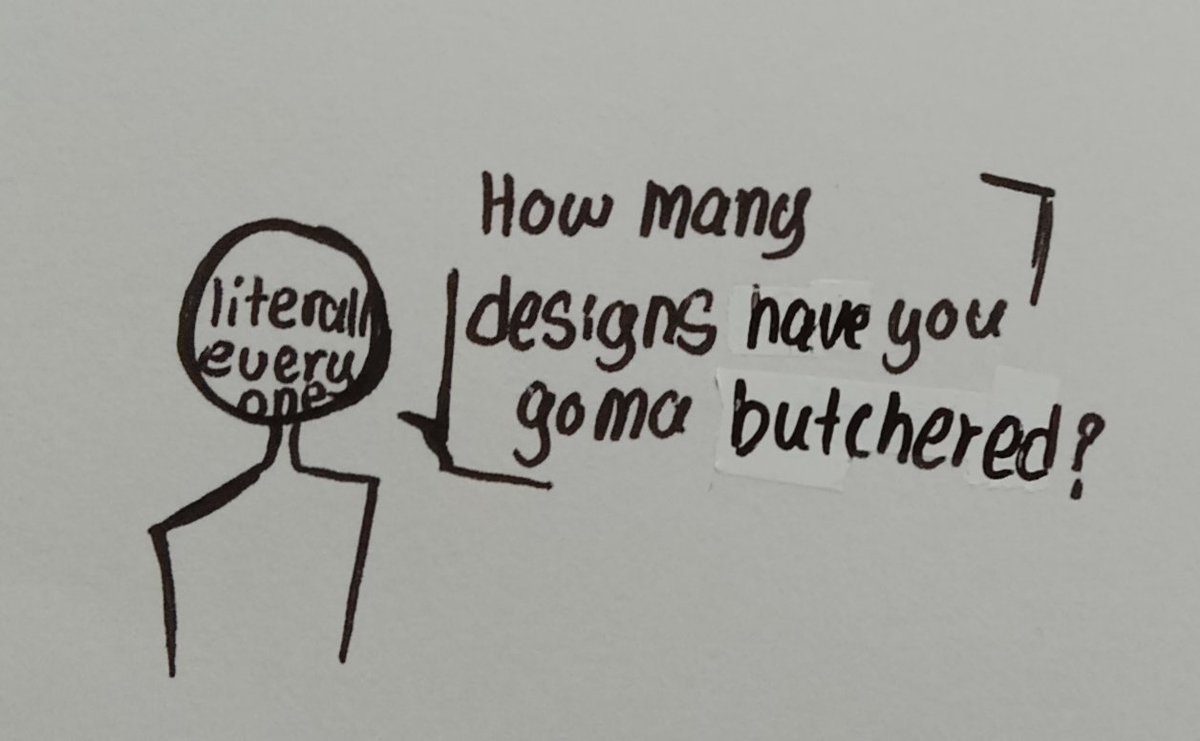 literall
every
one
How many
designs have you
goma butchered?